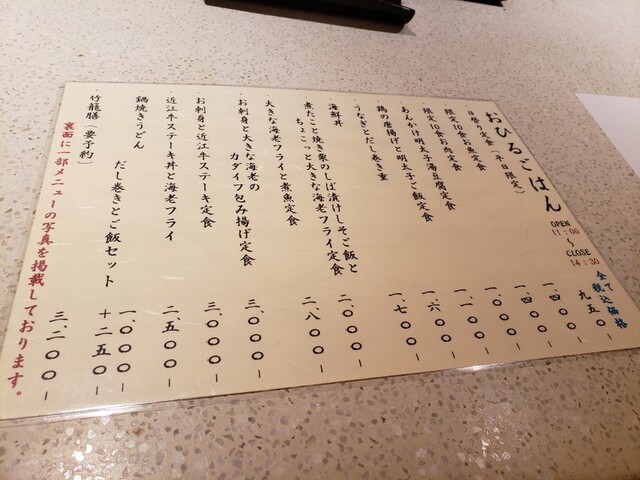 おひるごはん
OPEN
11:00
~
CLOSE
14:30
全て
税込価格
・日替り定食(平日限定) 九五〇-
・限定10食お魚定食 一、四〇〇-
・限定10食お肉定食 一、四〇〇-
・あんかけ明太子湯豆腐定食 一、〇〇〇-
・鶏の唐揚げと明太子ご飯定食 一、一〇〇-
・うなぎとだし巻き重 一、六〇〇-
・海鮮丼 一、七〇〇-
・煮たこと焼き栗のしば漬けしそご飯と
ちょこっと大きな海老フライ定食 二、〇〇〇-
・大きな海老フライと煮魚定食 二、八〇〇-
・お刺身と大きな海老の
カダイフ包み揚げ定食 三、〇〇〇-
・お刺身と近江牛ステーキ定食 三、〇〇〇-
・近江牛ステーキ丼と海老フライ 二、五〇〇-
・鍋焼きうどん 一、〇〇〇-
だし巻きとご飯セット +二五〇-
・竹龍膳(要予約) 三、二〇〇-
裏面に一部メニューの写真を掲載しております。